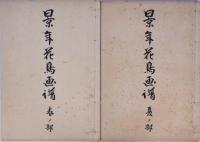 景年花鳥画譜
春ノ部
景年花鳥画譜
夏ノ部